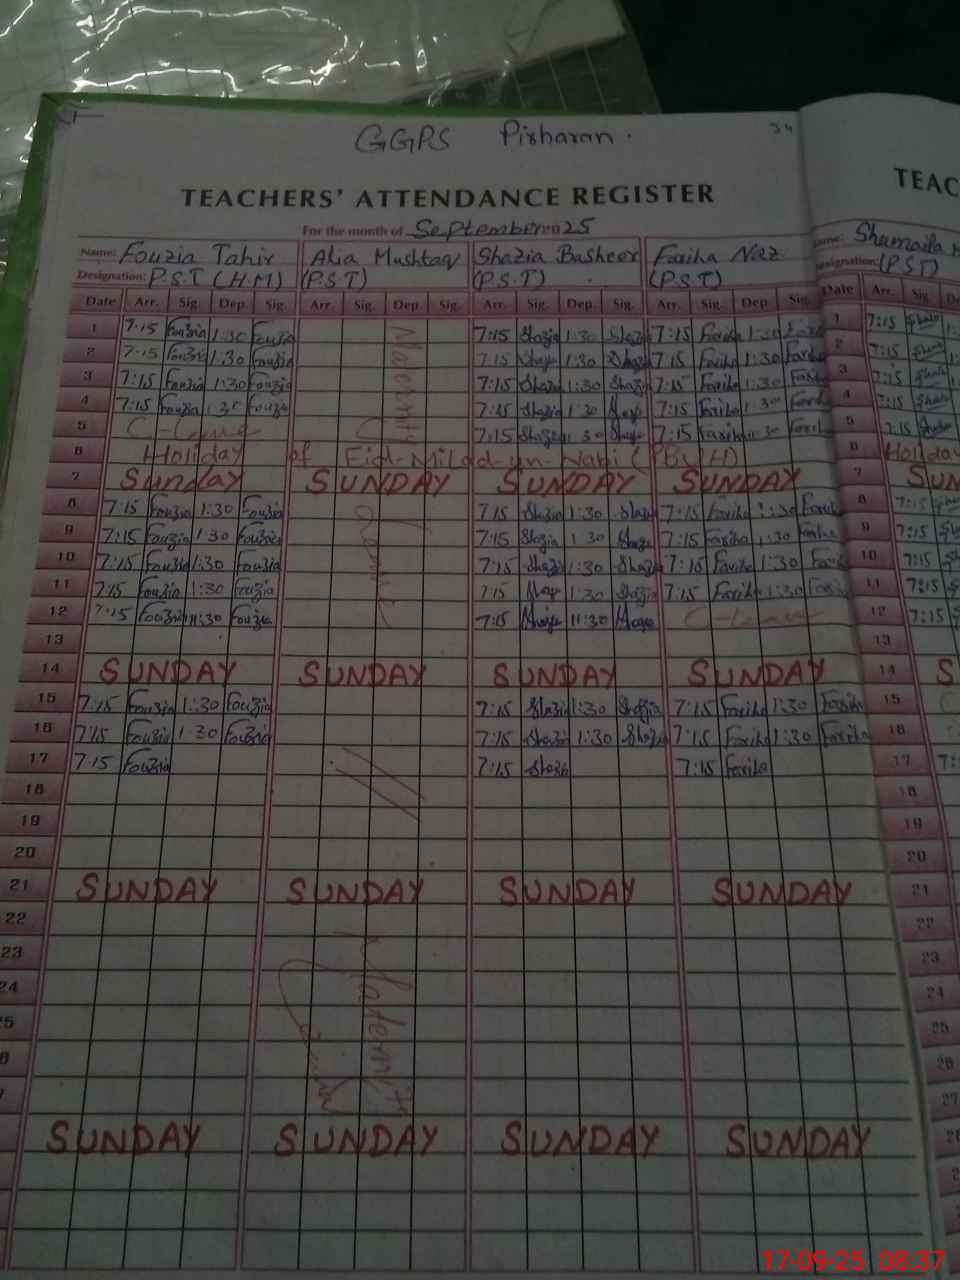 GGPS Pirharan.
34
TEACHERS' ATTENDANCE REGISTER
TEAC
For the month of September 2025
Name: Fouzia Tahir Alia Mushtaq Shazia Basheer Fariha Naz Name: Shumaila
Designation: P.S.T (H.M) (P.S.T) (P.S.T) (P.S.T) Designation: (PST)
Date Arr. Sig. Dep. Sig. Arr. Sig. Dep. Sig. Arr. Sig. Dep. Sig. Arr. Sig. Dep Sig. Date Arr. Sig
1 7:15 Fouzia 1:30 Fouzia 7:15 Shazia 1:30 Shazia 7:15 Fariha 1:30 Fariha 1 7:15
2 7:15 Fouzia 1:30 Fouzia 7:15 Shazia 1:30 Shazia 7:15 Fariha 1:30 Fariha 2 7:15
3 7:15 Fouzia 1:30 Fouzia 7:15 Shazia 1:30 Shazia 7:15 Fariha 1:30 Fariha 3 7:15
4 7:15 Fouzia 1:30 Fouzia 7:15 Shazia 1:30 Shazia 7:15 Fariha 1:30 Fariha 4 7:15
5 C-Leave 7:15 Shazia 1:30 Shazia 7:15 Fariha 1:30 Fariha 5 7:15
Maternity
6 Holiday of Eid-Milad-un-Nabi (PBUH) 6 Holiday
7 Sunday SUNDAY SUNDAY SUNDAY 7 SUN
8 7:15 Fouzia 1:30 Fouzia 7:15 Shazia 1:30 Shazia 7:15 Fariha 1:30 Fariha 8 7:15
9 7:15 Fouzia 1:30 Fouzia 7:15 Shazia 1:30 Shazia 7:15 Fariha 1:30 Fariha 9 7:15
10 7:15 Fouzia 1:30 Fouzia 7:15 Shazia 1:30 Shazia 7:15 Fariha 1:30 Fariha 10 7:15
11 7:15 Fouzia 1:30 Fouzia 7:15 Shazia 1:30 Shazia 7:15 Fariha 1:30 Fariha 11 7:15
12 7:15 Fouzia 11:30 Fouzia 7:15 Shazia 11:30 Shazia C-Leave 12 7:15
13 13
14 SUNDAY SUNDAY SUNDAY SUNDAY 14 S
15 7:15 Fouzia 1:30 Fouzia 7:15 Shazia 1:30 Shazia 7:15 Fariha 1:30 Fariha 15
16 7:15 Fouzia 1:30 Fouzia 7:15 Shazia 1:30 Shazia 7:15 Fariha 1:30 Fariha 16
17 7:15 Fouzia 7:15 Shazia 7:15 Fariha 17 7:
18 18
19 19
20 20
21 SUNDAY SUNDAY SUNDAY SUNDAY 21
22 22
23 23
24 24
25 25
26
Maternity
27
SUNDAY SUNDAY SUNDAY SUNDAY 28
17-09-25 08:37